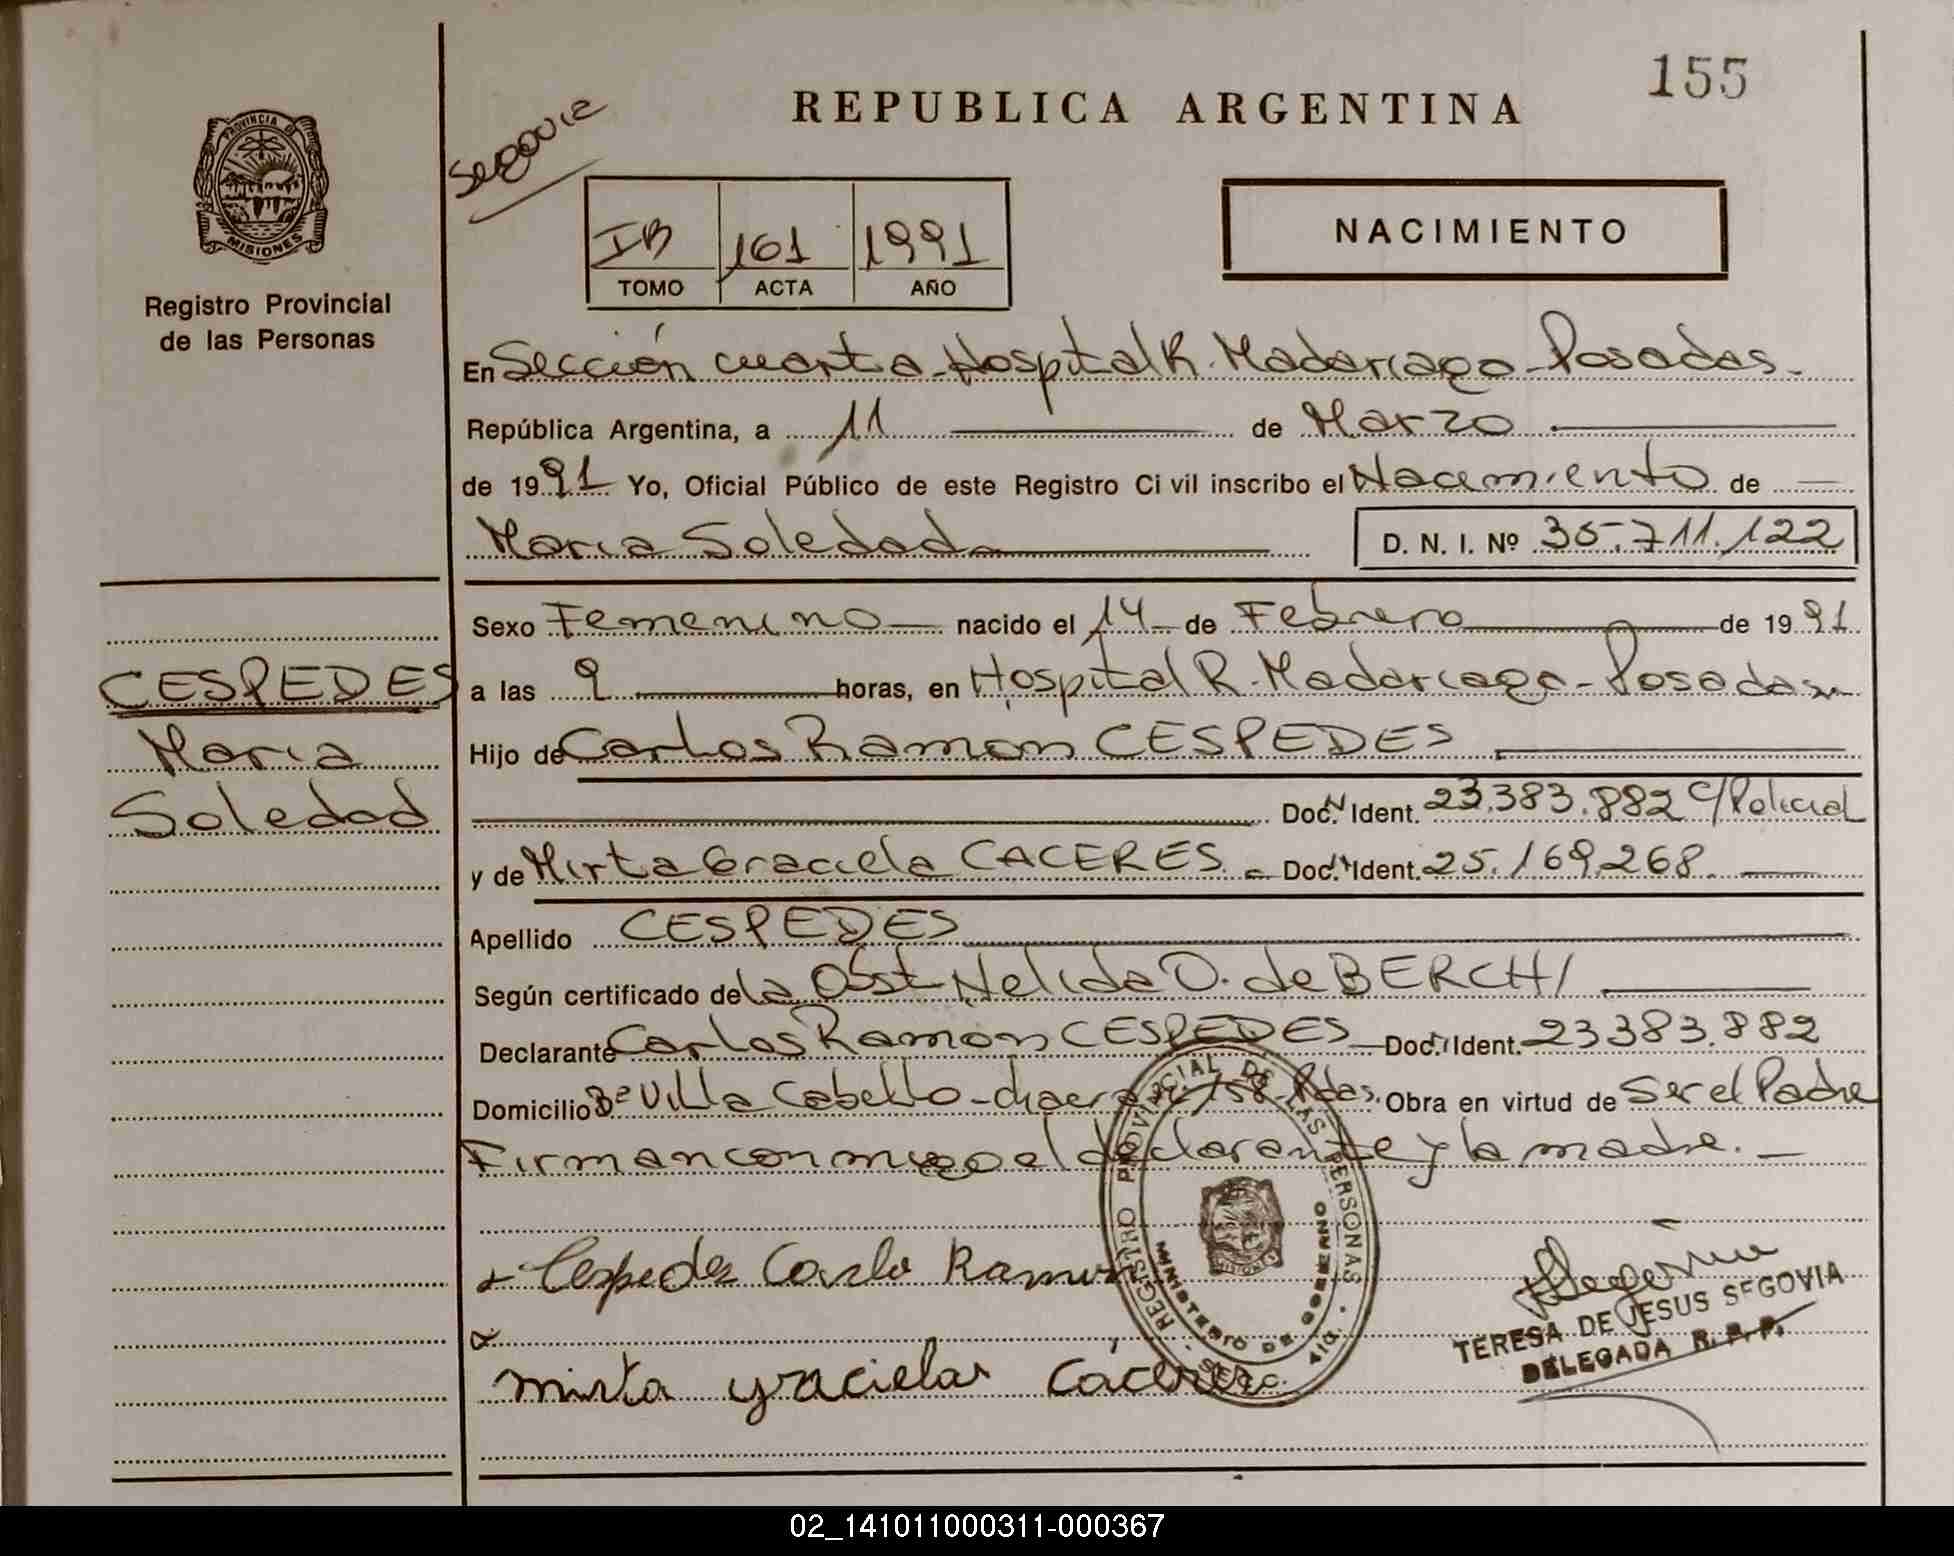 155
REPUBLICA ARGENTINA
Segovia
PROVINCIA DE
MISIONES
Registro Provincial
de las Personas
IB 161 1991
TOMO ACTA AÑO
NACIMIENTO
En Sección cuarta-Hospital R. Madariaga-Posadas.
República Argentina, a 11 de Marzo
de 1991 Yo, Oficial Público de este Registro Civil inscribo el Nacimiento de
Maria Soledad D. N. I. Nº 35.711.122
Sexo Femenino nacido el 14 de Febrero de 1991
a las 9 horas, en Hospital R. Madariaga-Posadas
Hijo de Carlos Ramon CESPEDES
Doc. N Ident. 23.383.882 C/Policial
y de Mirta Graciela CACERES. Doc. Ident. 25.169.268.
Apellido CESPEDES
Según certificado de la Obst. Nelida O. de BERCHI
Declarante Carlos Ramon CESPEDES Doc. Ident. 23383.882
Domicilio Bº Villa Cabello-chacra 158-Pdas. Obra en virtud de Ser el Padre
Firman conmigo el declarante y la madre.
CESPEDES
Maria
Soledad
Cespedes Carlo Ramon
mirta graciela Cáceres
REGISTRO PROVINCIAL DE LAS PERSONAS
MINISTERIO DE GOBIERNO
MISIONES
TERESA DE JESUS SEGOVIA
DELEGADA R. P. P.
02_141011000311-000367